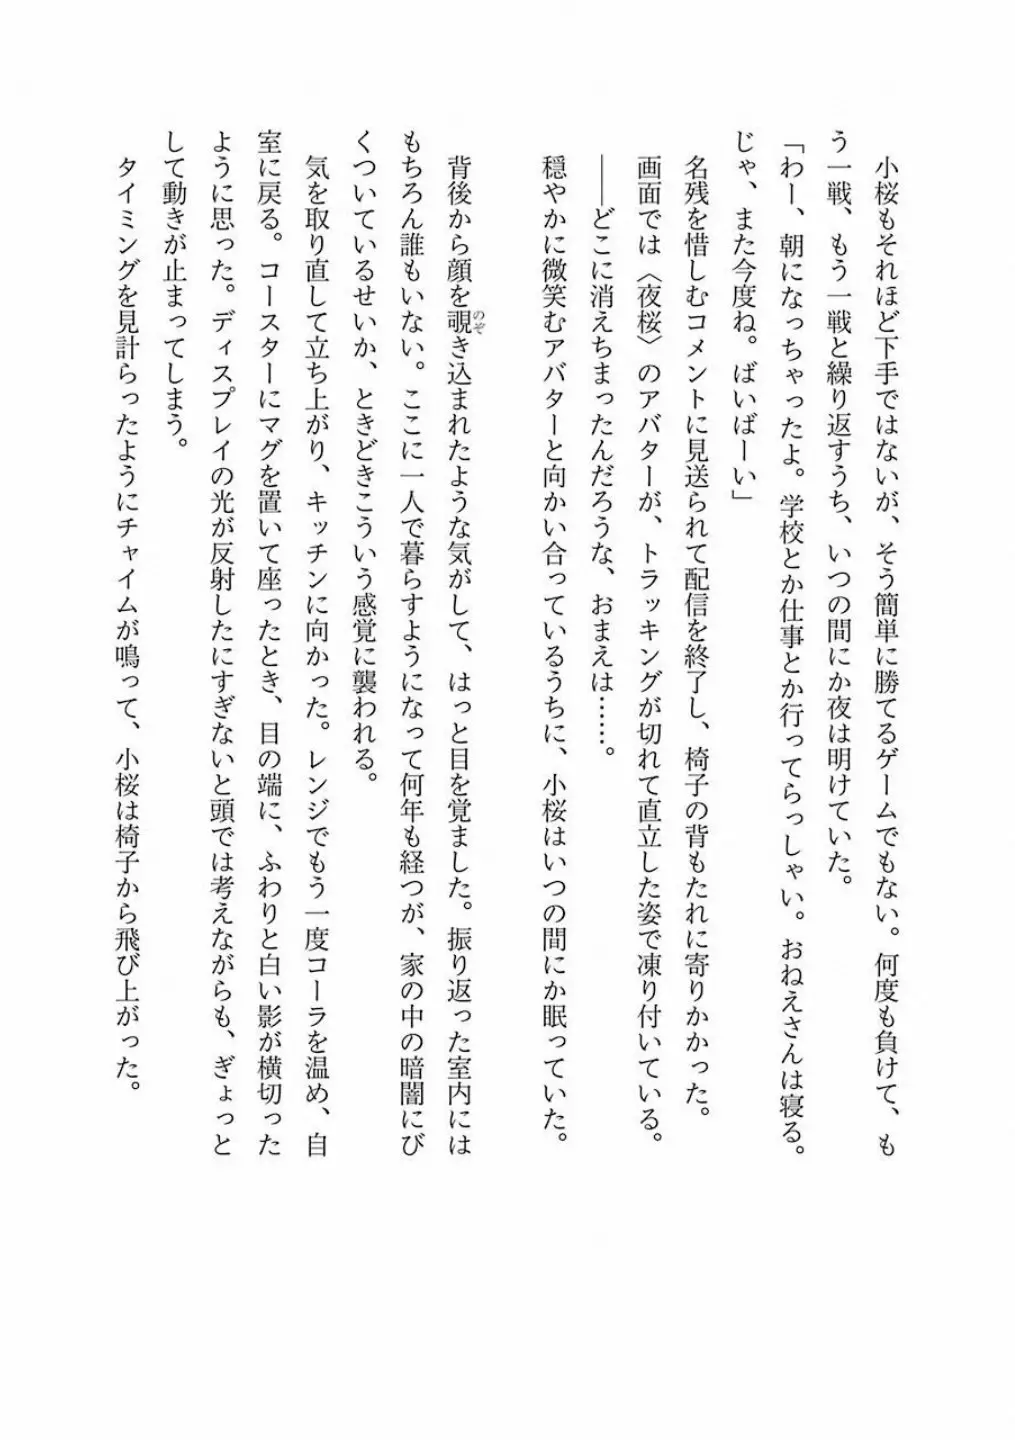 小桜もそれほど下手ではないが、そう簡単に勝てるゲームでもない。何度も負けて、も
う一戦、もう一戦と繰り返すうち、いつの間にか夜は明けていた。
「わー、朝になっちゃったよ。学校とか仕事とか行ってらっしゃい。おねえさんは寝る。
じゃ、また今度ね。ばいばーい」
　名残を惜しむコメントに見送られて配信を終了し、椅子の背もたれに寄りかかった。
　画面では〈夜桜〉のアバターが、トラッキングが切れて直立した姿で凍り付いている。
　――どこに消えちまったんだろうな、おまえは……。
　穏やかに微笑むアバターと向かい合っているうちに、小桜はいつの間にか眠っていた。
　背後から顔を覗き込まれたような気がして、はっと目を覚ました。振り返った室内には
のぞ
もちろん誰もいない。ここに一人で暮らすようになって何年も経つが、家の中の暗闇にび
くついているせいか、ときどきこういう感覚に襲われる。
　気を取り直して立ち上がり、キッチンに向かった。レンジでもう一度コーラを温め、自
室に戻る。コースターにマグを置いて座ったとき、目の端に、ふわりと白い影が横切った
ように思った。ディスプレイの光が反射したにすぎないと頭では考えながらも、ぎょっと
して動きが止まってしまう。
　タイミングを見計らったようにチャイムが鳴って、小桜は椅子から飛び上がった。